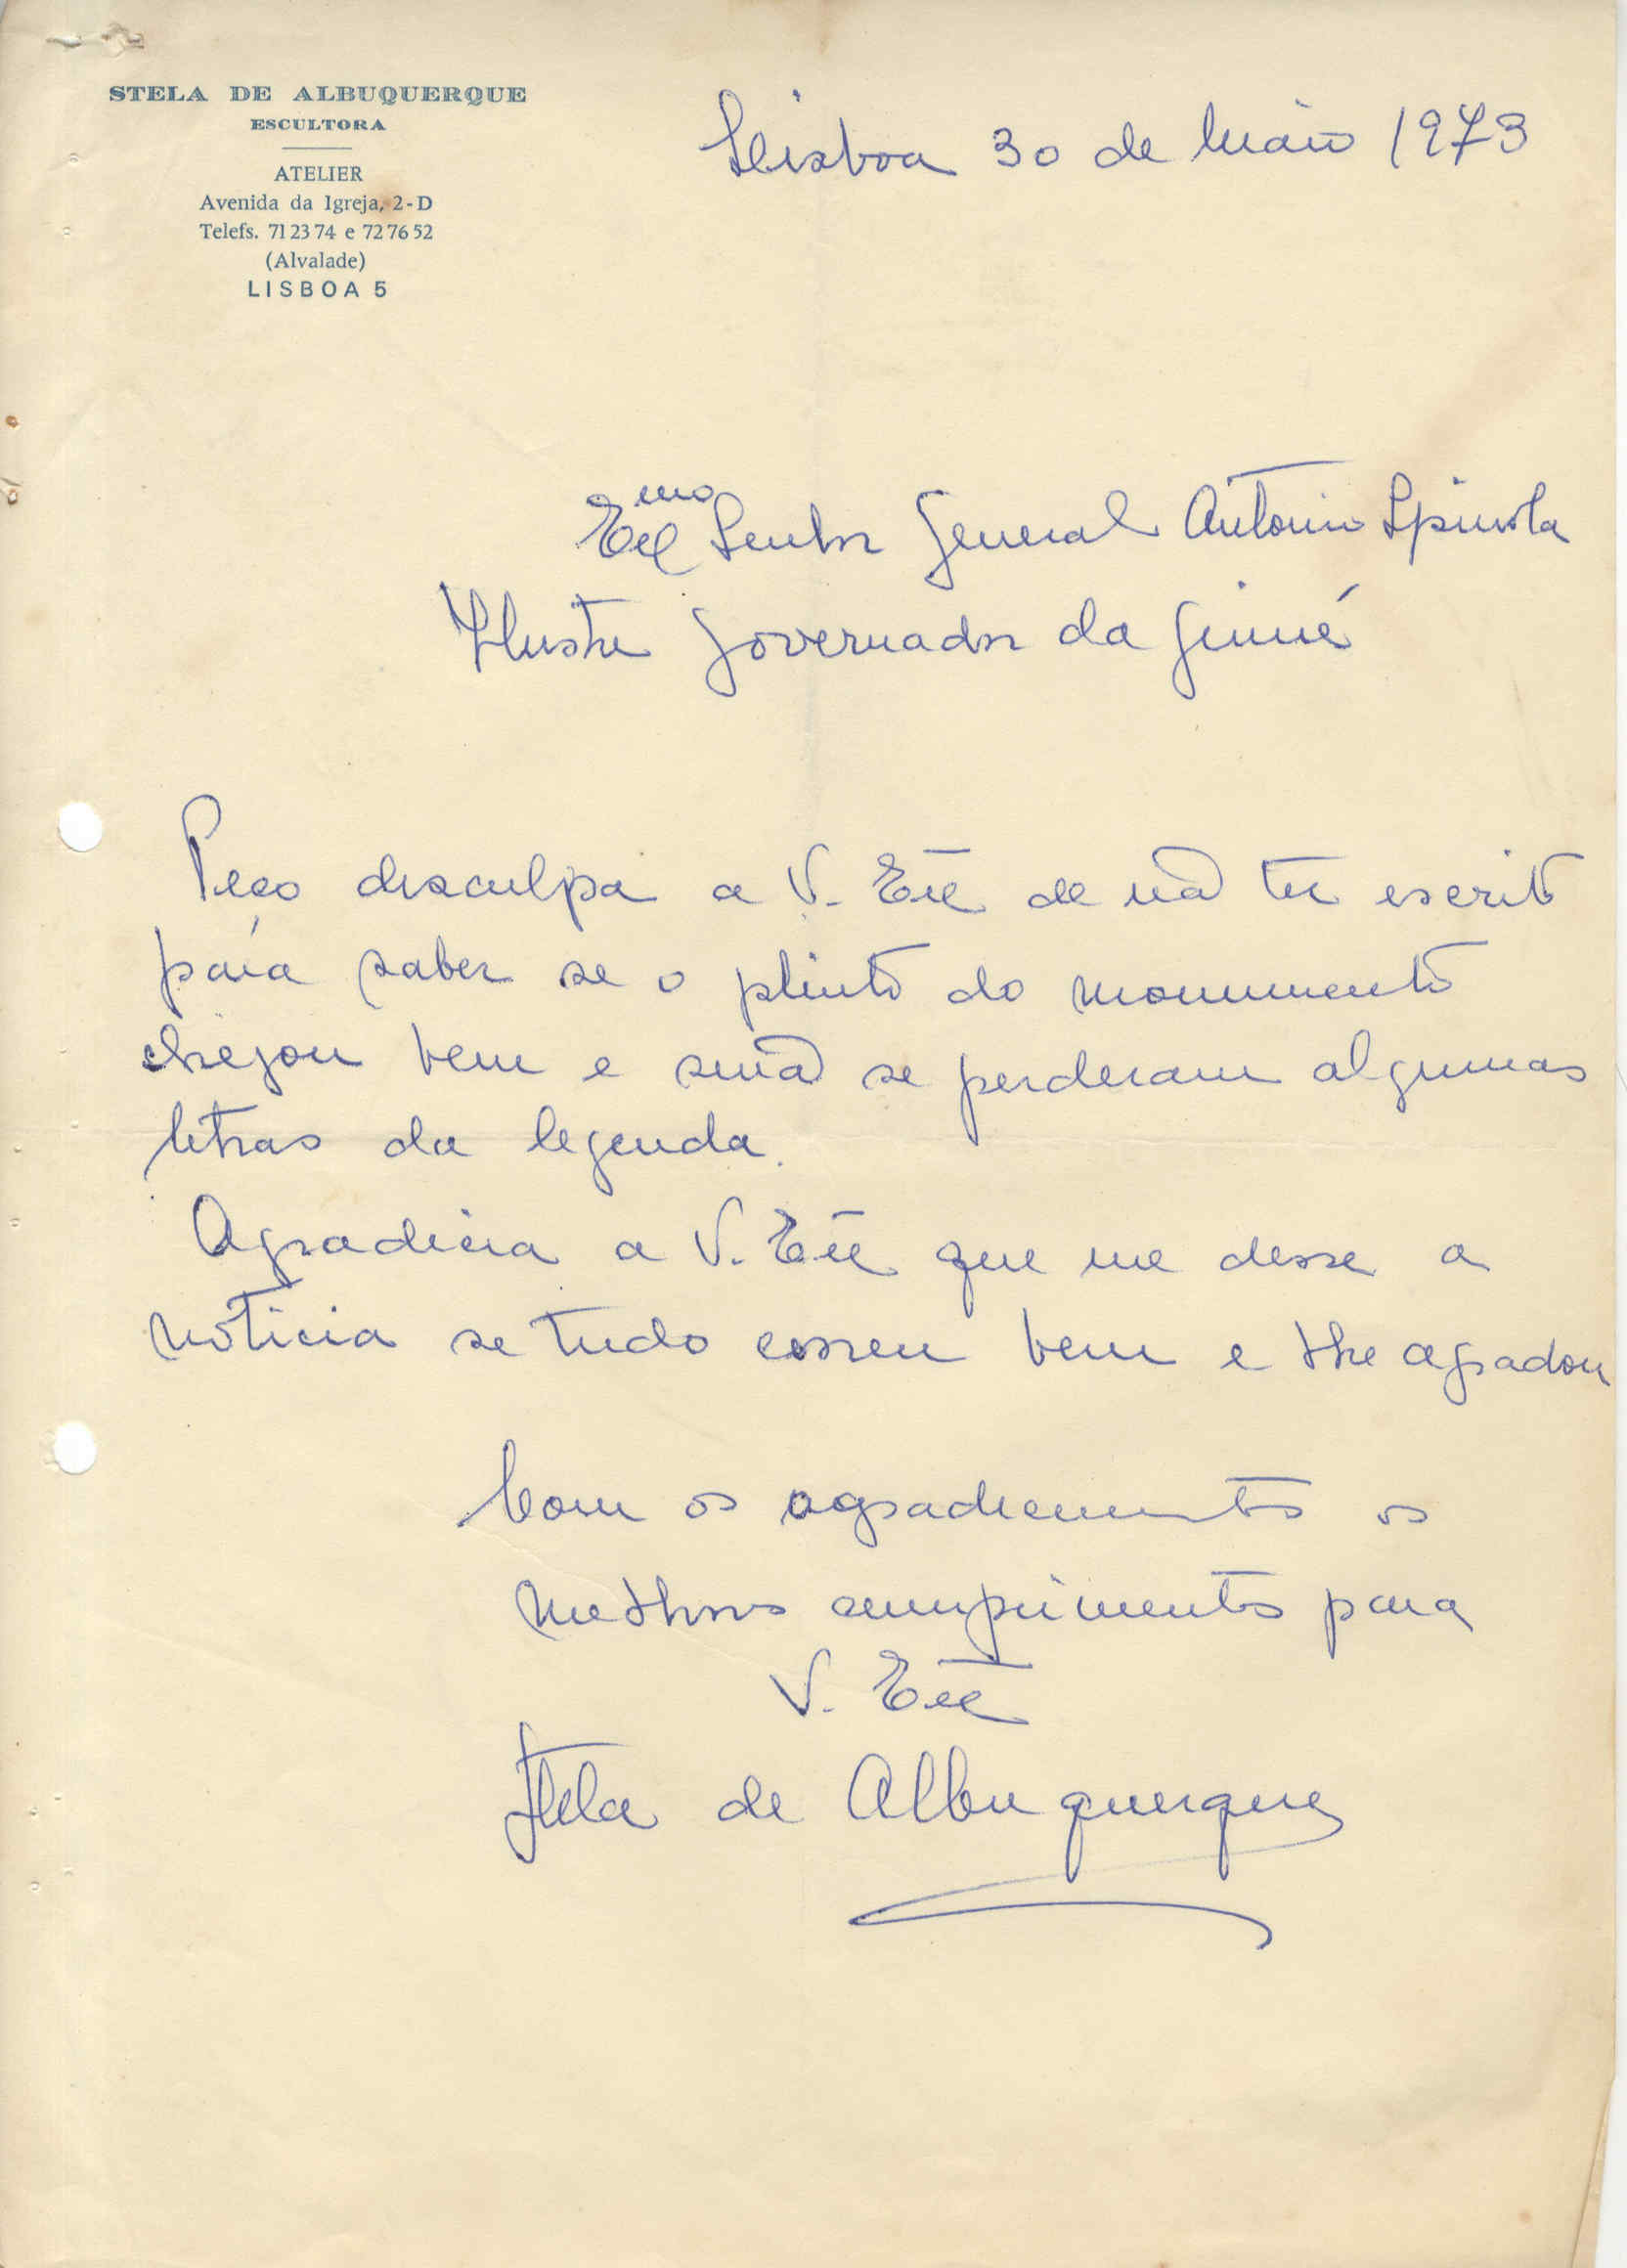 STELA DE ALBUQUERQUE
ESCULTORA
ATELIER
Avenida da Igreja, 2-D
Telefs. 71 23 74 e 72 76 52
(Alvalade)
LISBOA 5
Lisboa 30 de Maio 1973
Exmo Senhor General António Spinola
Ilustre Governador da Guiné
Peço desculpa a V. Exc de não ter escrito
para saber se o plinto do monumento
chegou bem e se não se perderam algumas
letras da legenda.
Agradecia a V. Exc que me desse a
noticia se tudo correu bem e lhe agradou
Com os agradecimentos os
melhores cumprimentos para
V. Exc
Stela de Albuquerque